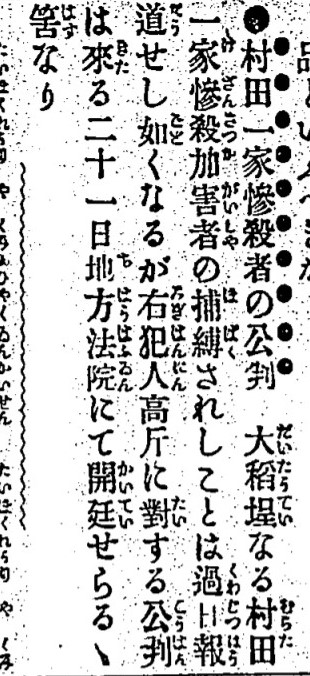 ●村田一家慘殺者の公判　大稻埕なる村田
一家慘殺加害者の捕縛されしことは過日報
道せし如くなるが右犯人高斤に對する公判
は來る二十一日地方法院にて開廷せらるゝ
筈なり